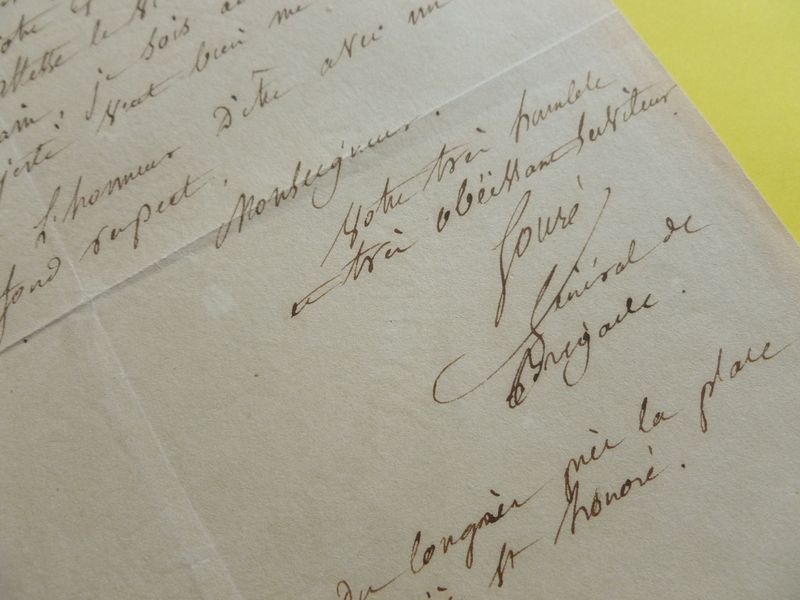 Altesse le
je sois
veut bien me
L'honneur D'être avec un
fond respect,
Monseigneur.
Votre très humble
et très obéissant Serviteur
Gouré
Général de
Brigade.
près la place
st honoré.